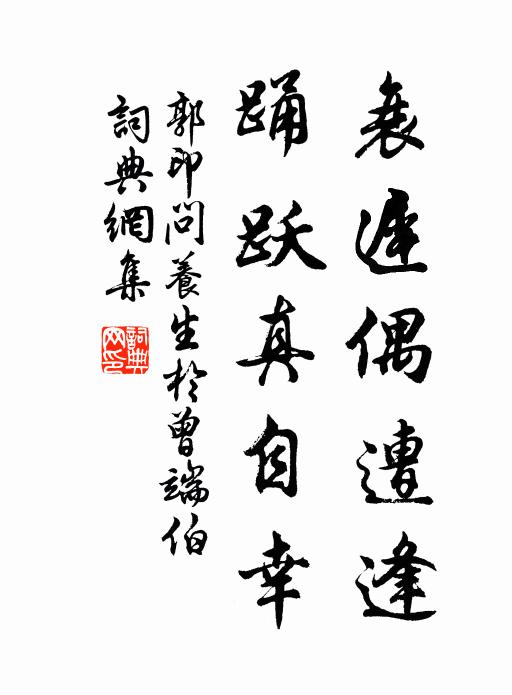 衰遲偶遭逢
踊跃真自幸
郭印問養生於曾端伯
詞典網集
詞典网印